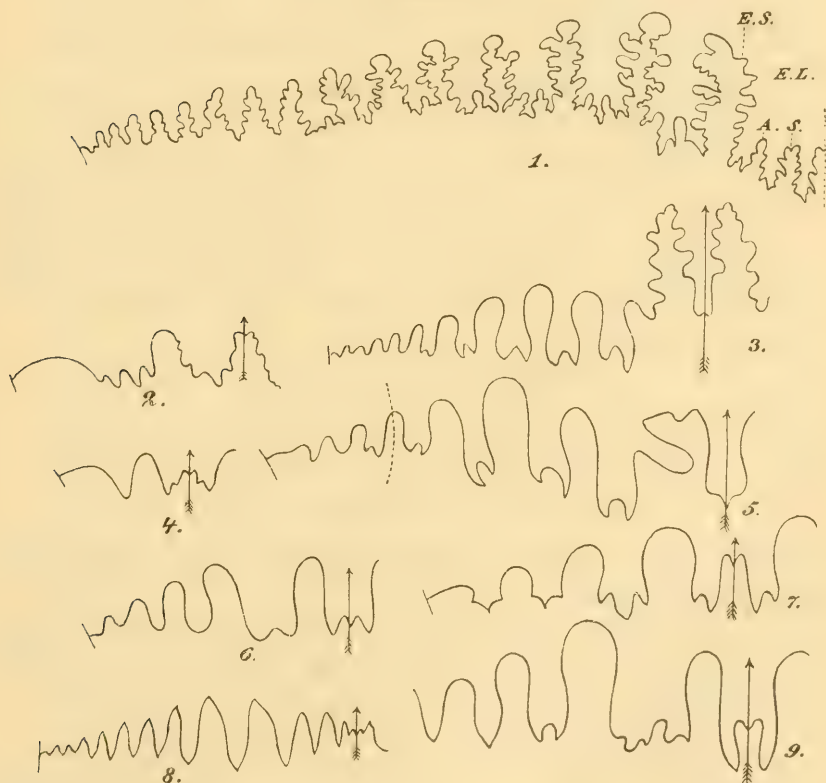 E.S.
E.L.
A. S.
1.
3.
2.
4.
5.
6.
7.
8.
9.